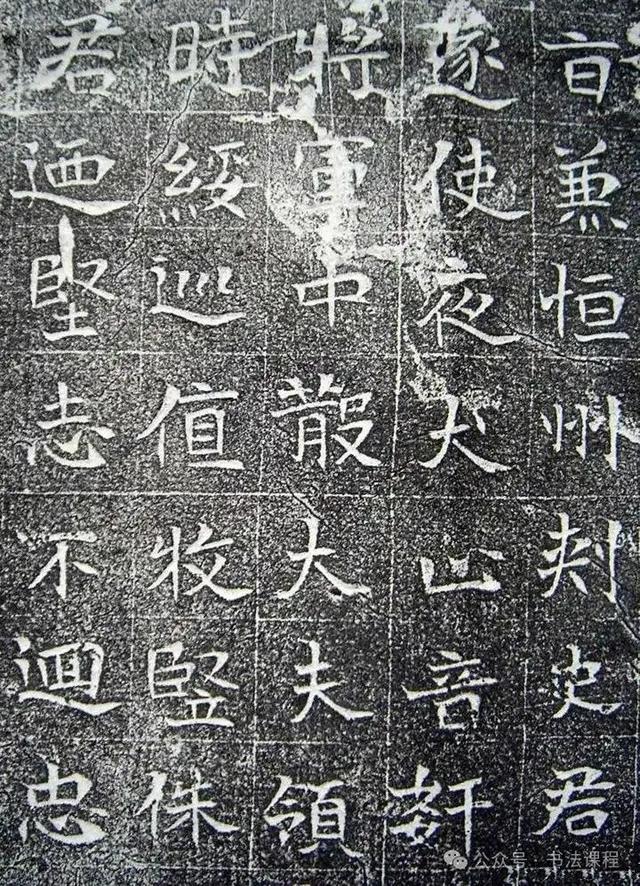 兼恒州刾史君
遂使夜犬止音奸
將軍中散大夫領
時綏巡值牧竪侏
君迺堅志不迴忠
公众号 · 书法课程